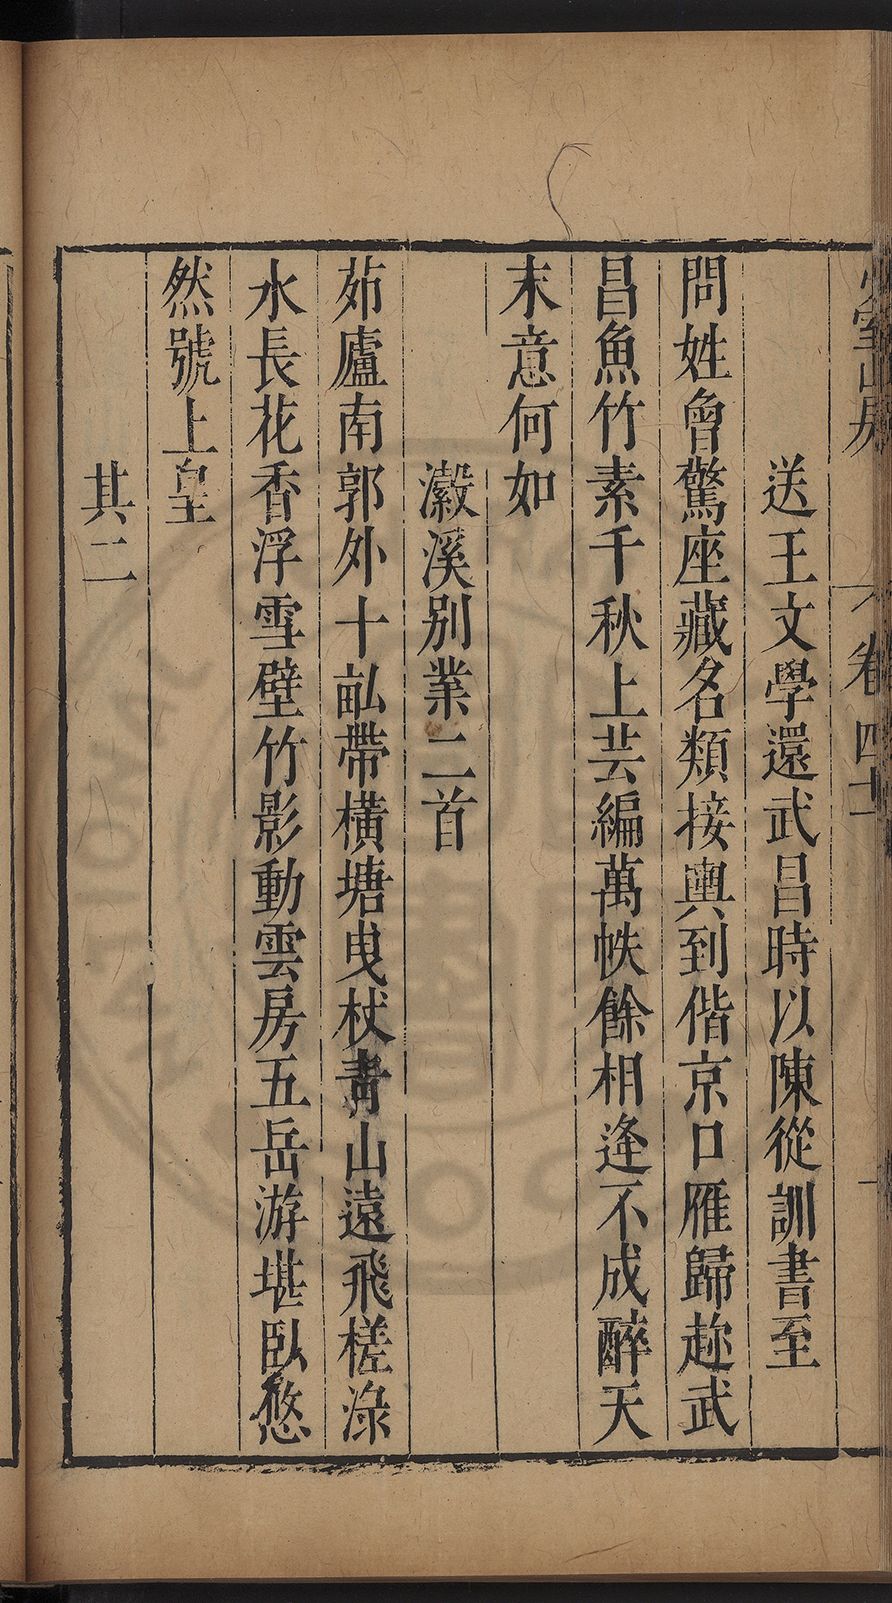 室山房
卷四十
送王文學還武昌時以陳從訓書至
問姓曾驚座藏名類接輿到偕京口雁歸趂武
昌魚竹素千秋上芸編萬帙餘相逢不成醉天
末意何如
瀫溪别業二首
茆廬南郭外十畝帶橫塘曳杖青山遠飛槎淥
水長花香浮雪壁竹影動雲房五岳游堪臥悠
然號上皇
其二